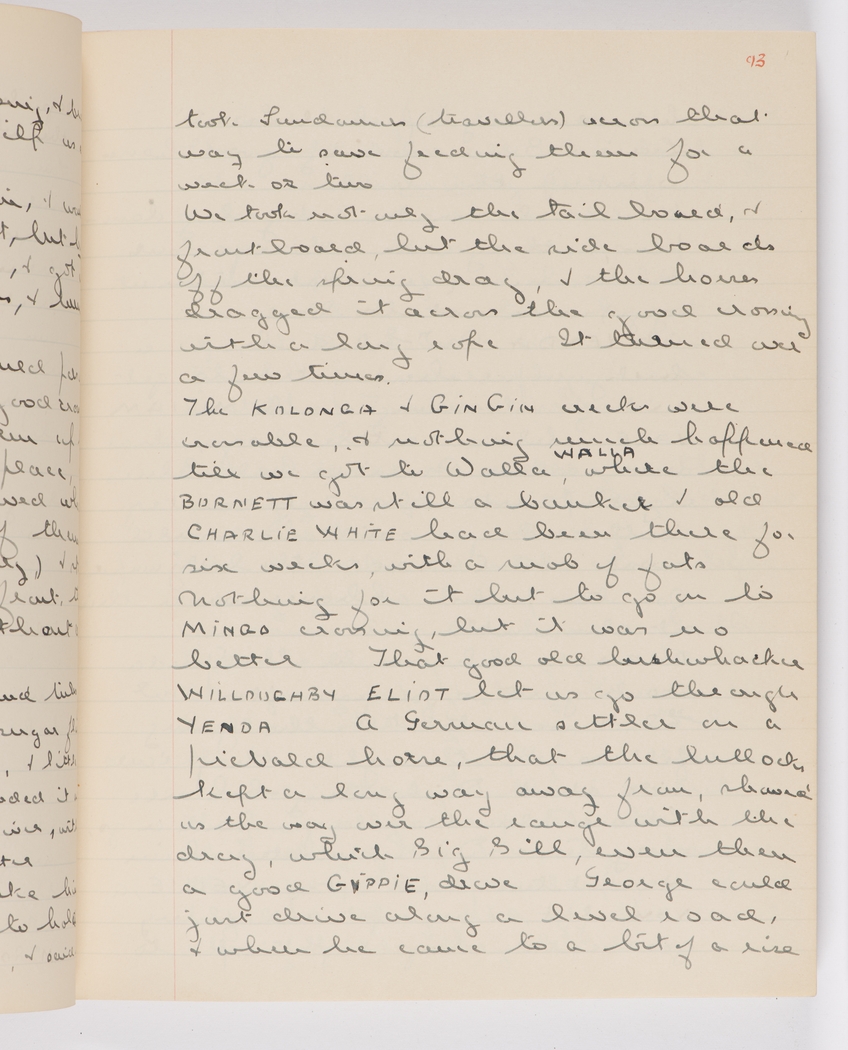 93
took Sundowners (travellers) across that
way to save feeding them for a
week or two
We took not only the tail board, &
front board, but the side boards
off the spring dray, & the horses
dragged it across the good crossing
with a long rope It turned over
a few times.
The KOLONGA & GIN GIN creeks were
crossable, & nothing much happened
WALLA
till we got to Walla, where the
BURNETT was still a banker & old
CHARLIE WHITE had been there for
six weeks, with a mob of fats
Nothing for it but to go on to
MINGO crossing, but it was no
better That good old bushwhacker
WILLOUGHBY ELIOT let us go through
YENDA A German settler on a
piebald horse, that the bullocks
kept a long way away from, showed
us the way over the range with the
dray, which Big Bill, even then
a good GYPPIE, drove George could
just drive along a level road,
& when he came to a bit of a rise